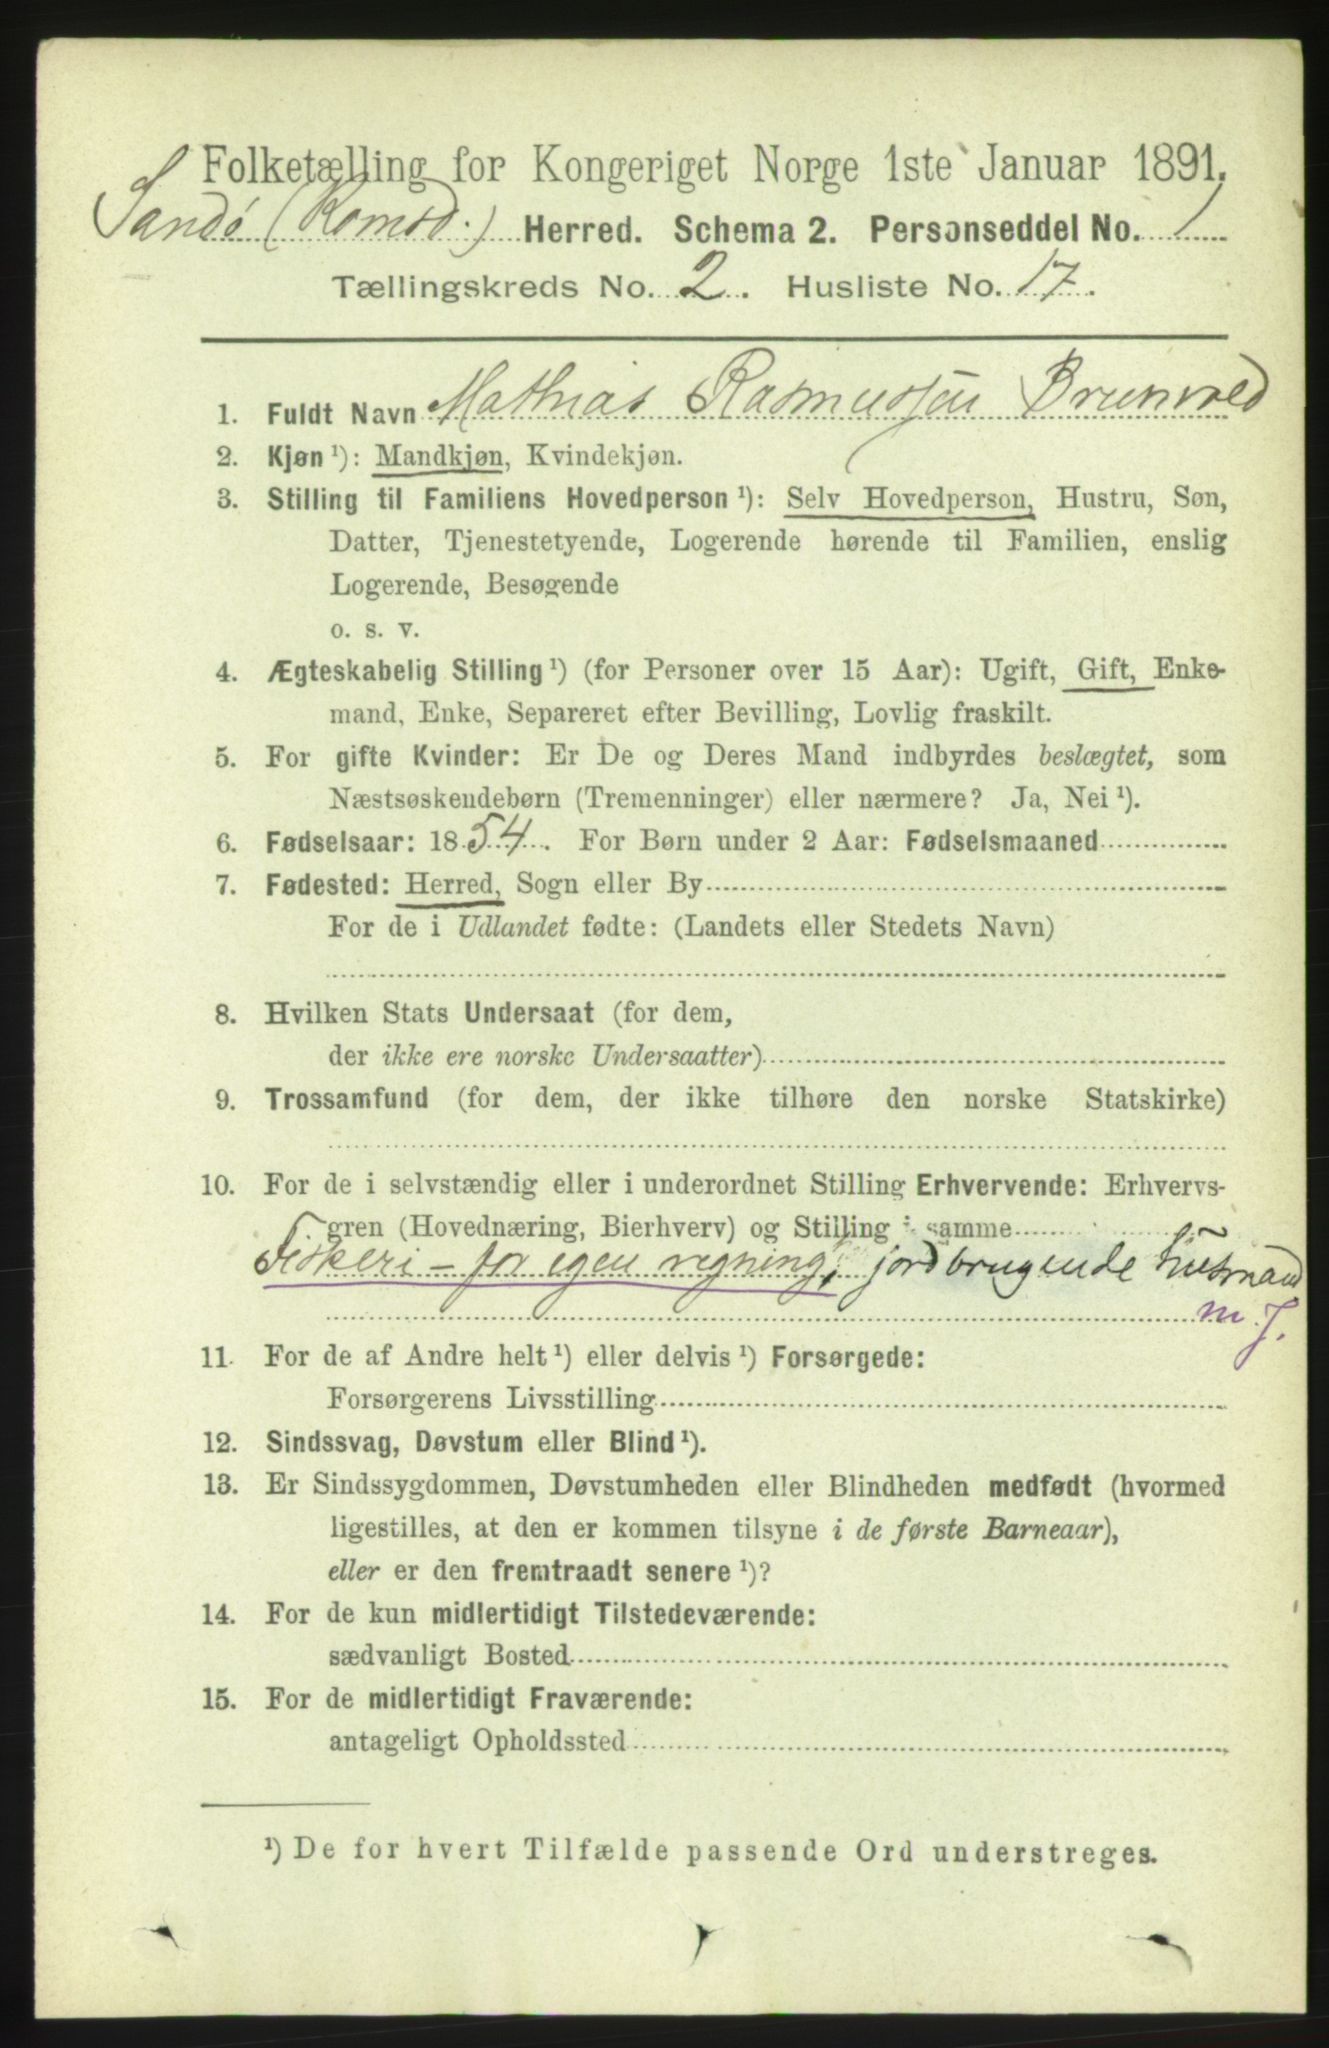 Folketælling for Kongeriget Norge 1ste Januar 1891.
Sandö (Romsd.) Herred. Schema 2. Personseddel No. 1
Tællingskreds No. 2. Husliste No. 17.
1. Fuldt Navn Mathias Rasmussen Brunvold
2. Kjøn ¹): Mandkjøn, Kvindekjøn.
3. Stilling til Familiens Hovedperson ¹): Selv Hovedperson, Hustru, Søn,
Datter, Tjenestetyende, Logerende hørende til Familien, enslig
Logerende, Besøgende
o. s. v.
4. Ægteskabelig Stilling ¹) (for Personer over 15 Aar): Ugift, Gift, Enke-
mand, Enke, Separeret efter Bevilling, Lovlig fraskilt.
5. For gifte Kvinder: Er De og Deres Mand indbyrdes beslægtet, som
Næstsøskendebørn (Tremenninger) eller nærmere? Ja, Nei ¹).
6. Fødselsaar: 1854. For Børn under 2 Aar: Fødselsmaaned
7. Fødested: Herred, Sogn eller By
For de i Udlandet fødte: (Landets eller Stedets Navn)
8. Hvilken Stats Undersaat (for dem,
der ikke ere norske Undersaatter)
9. Trossamfund (for dem, der ikke tilhøre den norske Statskirke)
10. For de i selvstændig eller i underordnet Stilling Erhvervende: Erhvervs-
gren (Hovednæring, Bierhverv) og Stilling i samme
Fiskeri - for egen regning, jordbrugende husmand
m. J.
11. For de af Andre helt ¹) eller delvis ¹) Forsørgede:
Forsørgerens Livsstilling
12. Sindssvag, Døvstum eller Blind ¹).
13. Er Sindssygdommen, Døvstumheden eller Blindheden medfødt (hvormed
ligestilles, at den er kommen tilsyne i de første Barneaar),
eller er den fremtraadt senere ¹)?
14. For de kun midlertidigt Tilstedeværende:
sædvanligt Bosted
15. For de midlertidigt Fraværende:
antageligt Opholdssted
¹) De for hvert Tilfælde passende Ord understreges.